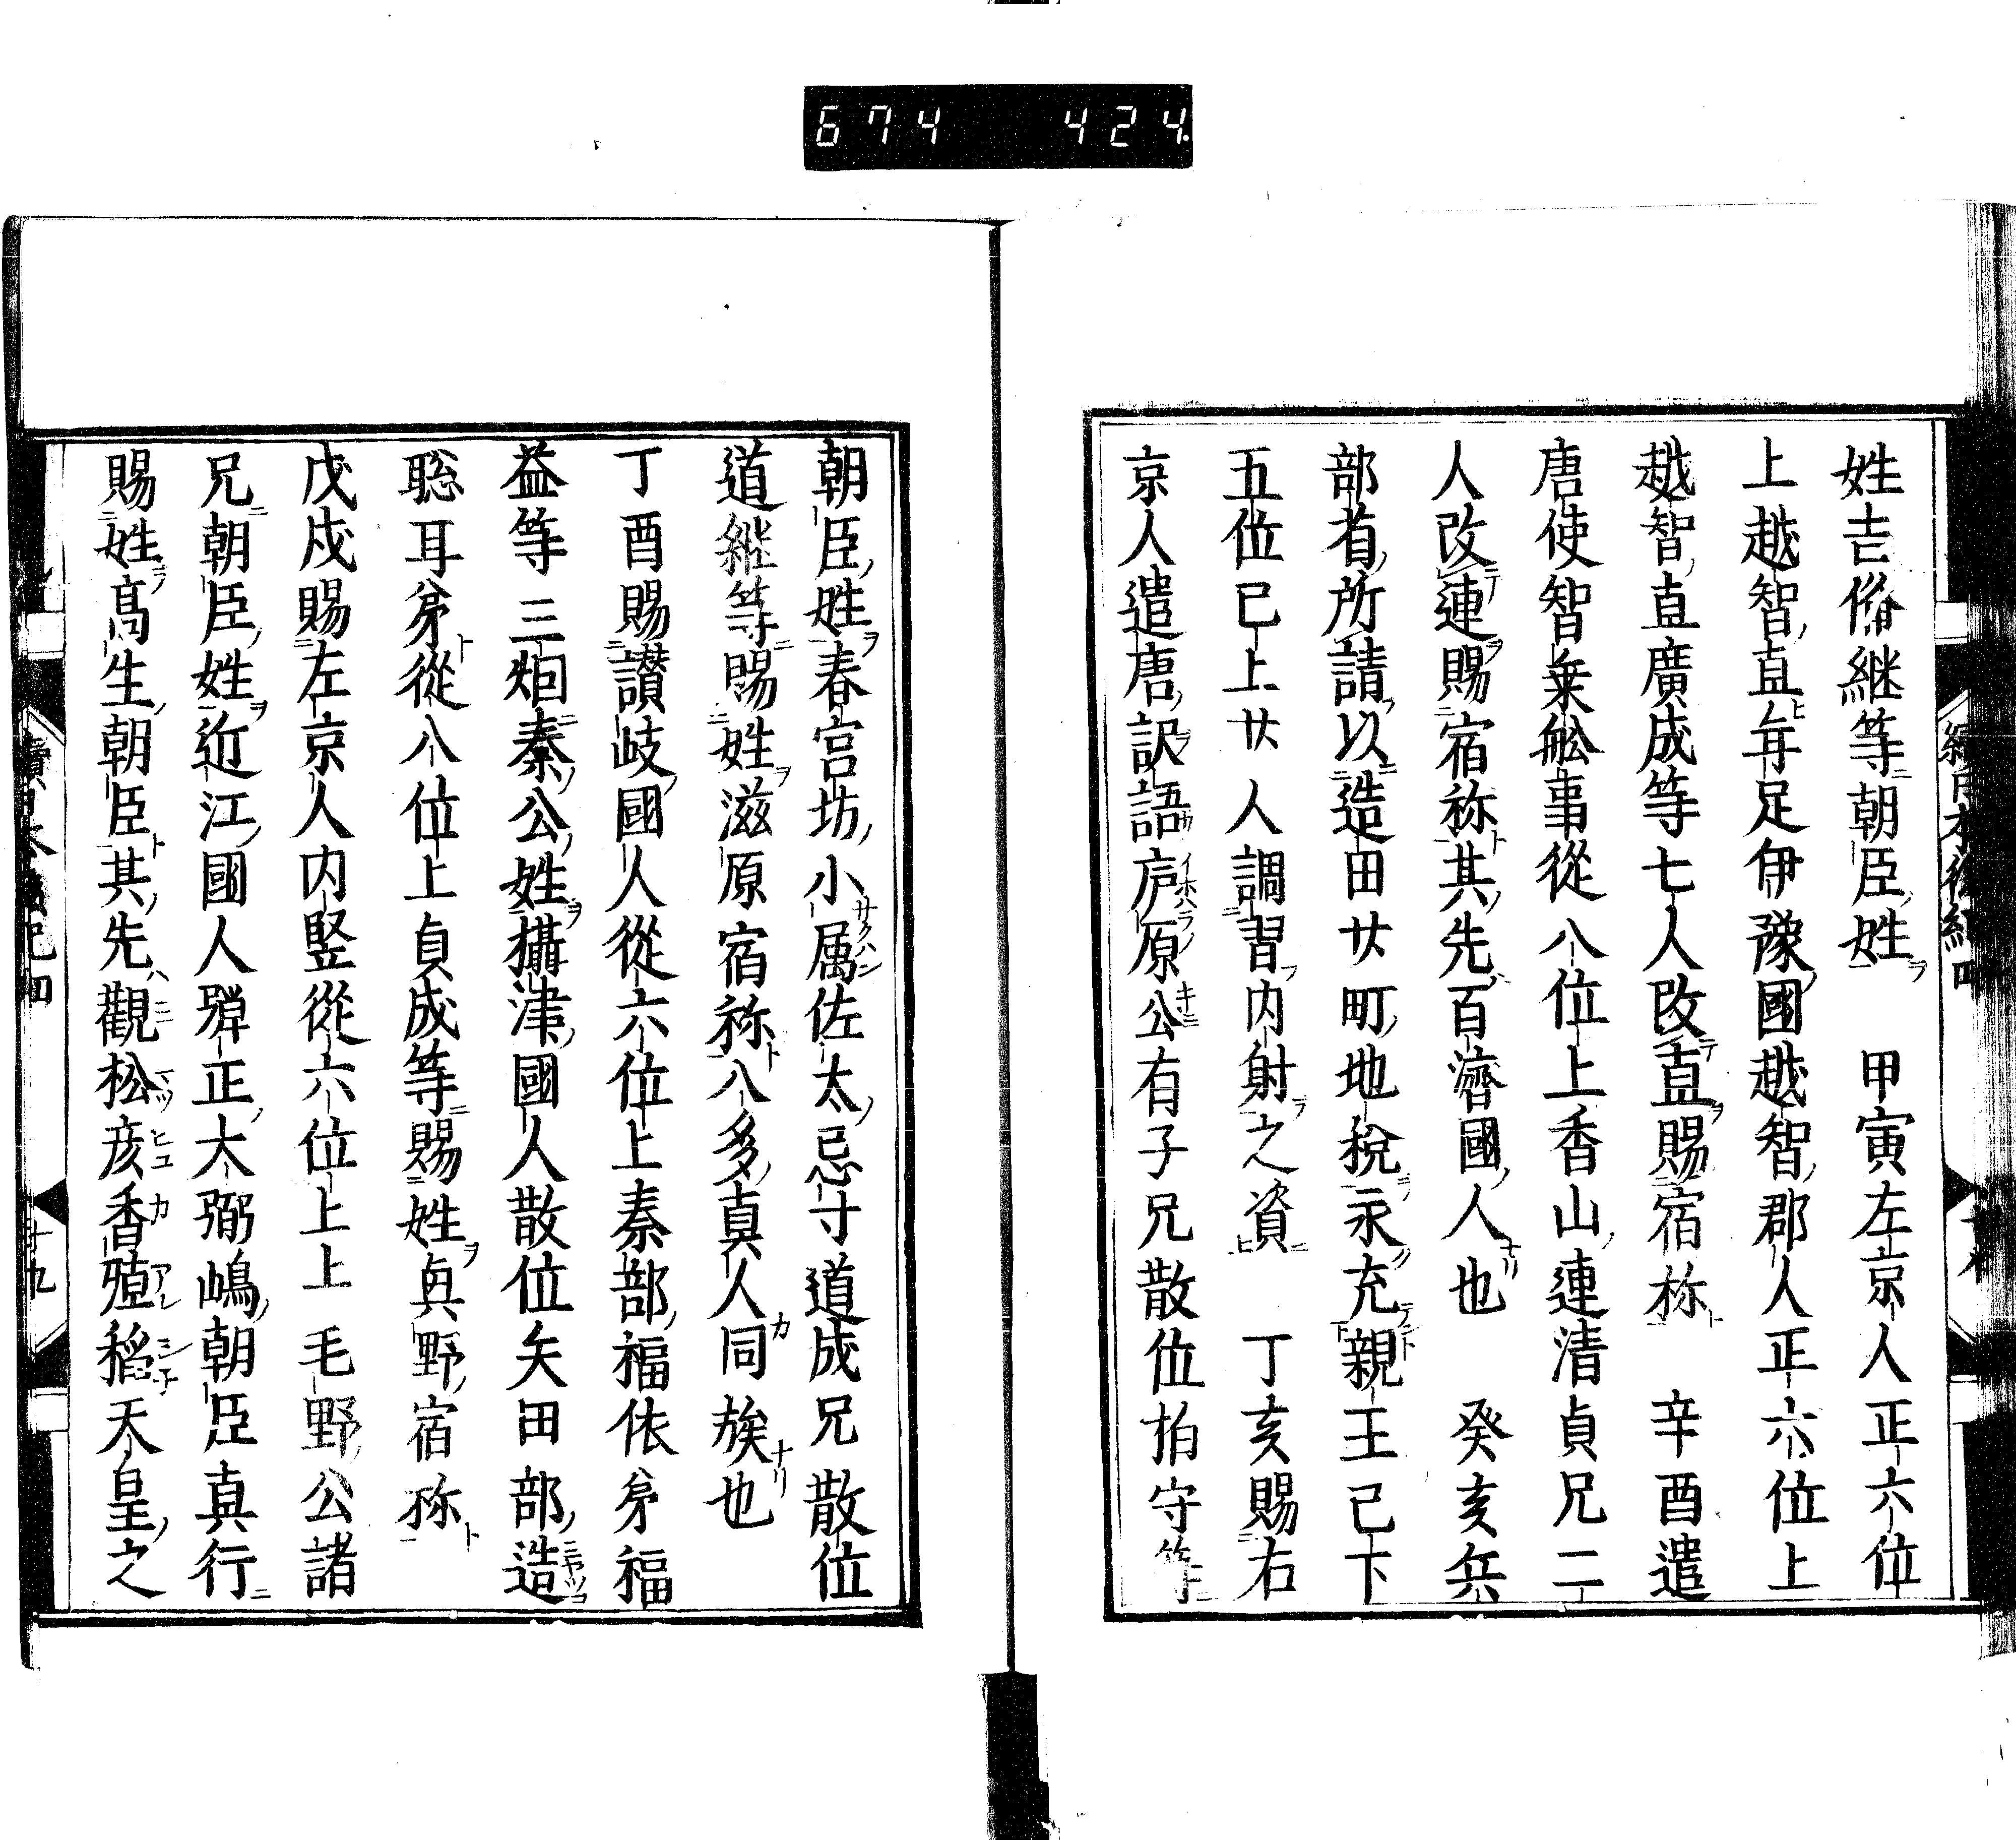 674 424
姓吉備継等朝臣姓 甲寅左京人正六位
上越智直年足伊豫國越智郡人正六位上
越智直廣成等七人改直賜宿祢 辛酉遣
唐使智乗舩事從八位上香山連清貞兄二
人改連賜宿祢其先百濟國人也 癸亥兵
部省所請以造田廿町地税永充親王已下
五位已上廿人調習内射之資 丁亥賜右
京人遣唐訳語廬原公有子兄散位柏守等
朝臣姓春宮坊小属佐太忌寸道成兄散位
道継等賜姓滋原宿祢八多真人同族也
丁酉賜讃岐國人從六位上秦部福依弟福
益等三烟秦公姓攝津國人散位矢田部造
聡耳弟從八位上貞成等賜姓真野宿祢
戊戌賜左京人内竪從六位上上毛野公諸
兄朝臣姓近江國人彈正大弼嶋朝臣真行
賜姓髙生朝臣其先觀松彦香殖稲天皇之
續日本後紀四
十九